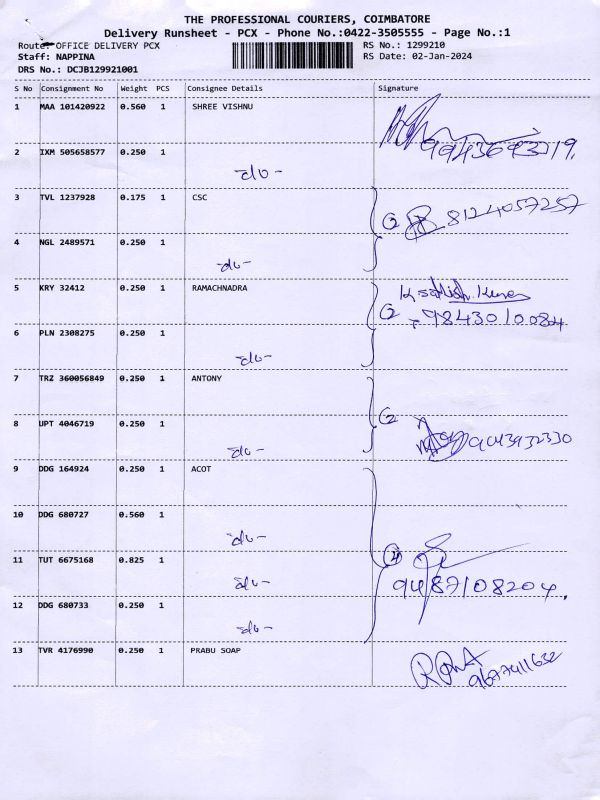 THE PROFESSIONAL COURIERS, COIMBATORE
Delivery Runsheet - PCX - Phone No.:0422-3505555 - Page No.:1
Route: OFFICE DELIVERY PCX RS No.: 1299210
Staff: NAPPINA RS Date: 02-Jan-2024
DRS No.: DCJB129921001
S No Consignment No Weight PCS Consignee Details Signature
1 MAA 101420922 0.560 1 SHREE VISHNU
9943693719.
2 IXM 505658577 0.250 1
-do-
3 TVL 1237928 0.175 1 CSC
② 8124057257
4 NGL 2489571 0.250 1
-do-
5 KRY 32412 0.250 1 RAMACHNADRA
② 9843010084
6 PLN 2308275 0.250 1
-do-
7 TRZ 360056849 0.250 1 ANTONY
②
8 UPT 4046719 0.250 1
-do- 9043932330
9 DDG 164924 0.250 1 ACOT
10 DDG 680727 0.560 1
-do-
11 TUT 6675168 0.825 1
④
-do- 9487108204.
12 DDG 680733 0.250 1
-do-
13 TVR 4176990 0.250 1 PRABU SOAP
9677411632